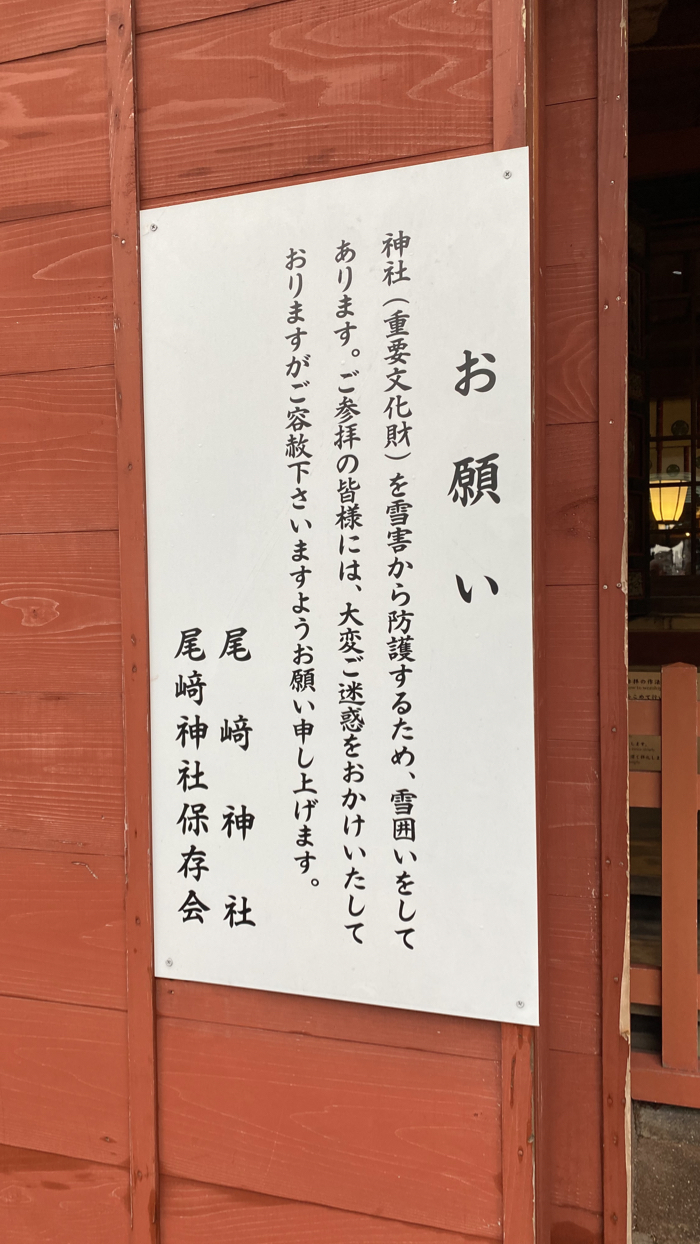 お願い
神社（重要文化財）を雪害から防護するため、雪囲いをして
あります。ご参拝の皆様には、大変ご迷惑をおかけいたして
おりますがご容赦下さいますようお願い申し上げます。
尾﨑神社
尾﨑神社保存会